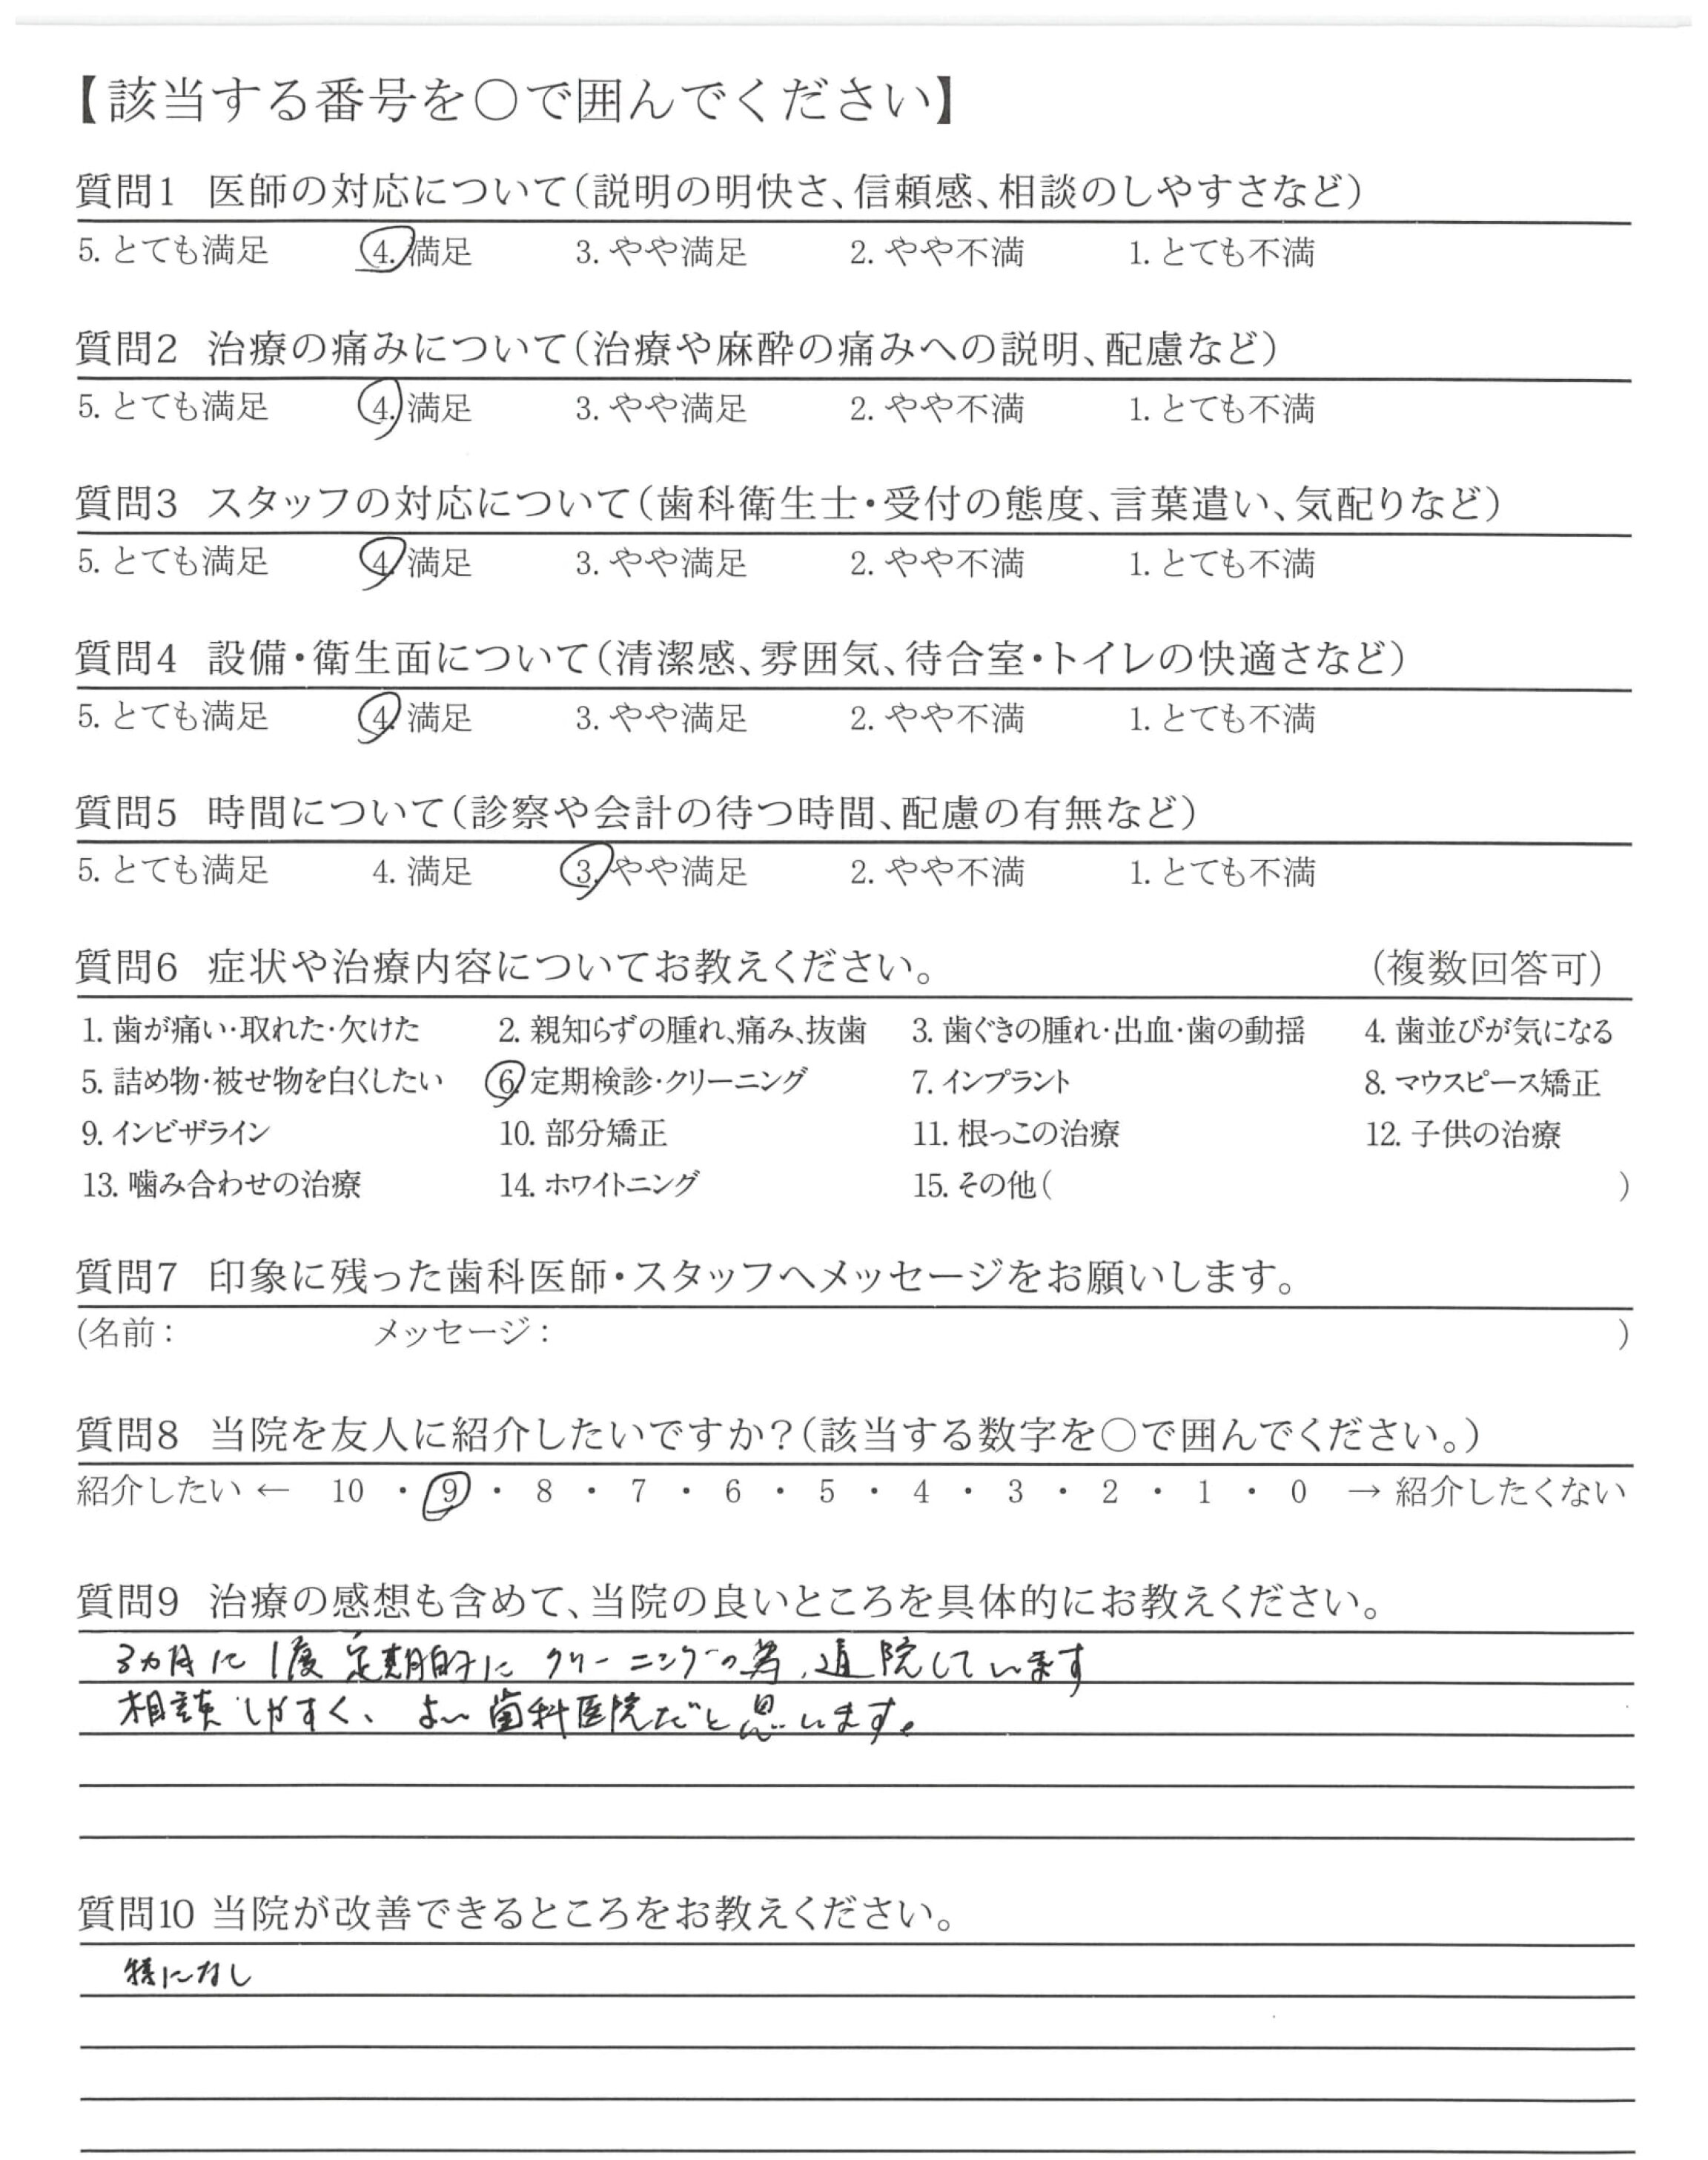 【該当する番号を〇で囲んでください】
質問1 医師の対応について(説明の明快さ、信頼感、相談のしやすさなど)
5. とても満足 4. 満足 3. やや満足 2. やや不満 1. とても不満
質問2 治療の痛みについて(治療や麻酔の痛みへの説明、配慮など)
5. とても満足 4. 満足 3. やや満足 2. やや不満 1. とても不満
質問3 スタッフの対応について(歯科衛生士・受付の態度、言葉遣い、気配りなど)
5. とても満足 4. 満足 3. やや満足 2. やや不満 1. とても不満
質問4 設備・衛生面について(清潔感、雰囲気、待合室・トイレの快適さなど)
5. とても満足 4. 満足 3. やや満足 2. やや不満 1. とても不満
質問5 時間について(診察や会計の待つ時間、配慮の有無など)
5. とても満足 4. 満足 3. やや満足 2. やや不満 1. とても不満
質問6 症状や治療内容についてお教えください。 (複数回答可)
1. 歯が痛い・取れた・欠けた 2. 親知らずの腫れ、痛み、抜歯 3. 歯ぐきの腫れ・出血・歯の動揺 4. 歯並びが気になる
5. 詰め物・被せ物を白くしたい 6. 定期検診・クリーニング 7. インプラント 8. マウスピース矯正
9. インビザライン 10. 部分矯正 11. 根っこの治療 12. 子供の治療
13. 噛み合わせの治療 14. ホワイトニング 15. その他( )
質問7 印象に残った歯科医師・スタッフへメッセージをお願いします。
(名前: メッセージ: )
質問8 当院を友人に紹介したいですか?(該当する数字を〇で囲んでください。)
紹介したい ← 10 ・ 9 ・ 8 ・ 7 ・ 6 ・ 5 ・ 4 ・ 3 ・ 2 ・ 1 ・ 0 → 紹介したくない
質問9 治療の感想も含めて、当院の良いところを具体的にお教えください。
3ヵ月に1度定期的にクリーニングの為、通院しています
相談しやすく、よい歯科医院だと思います。
質問10 当院が改善できるところをお教えください。
特になし